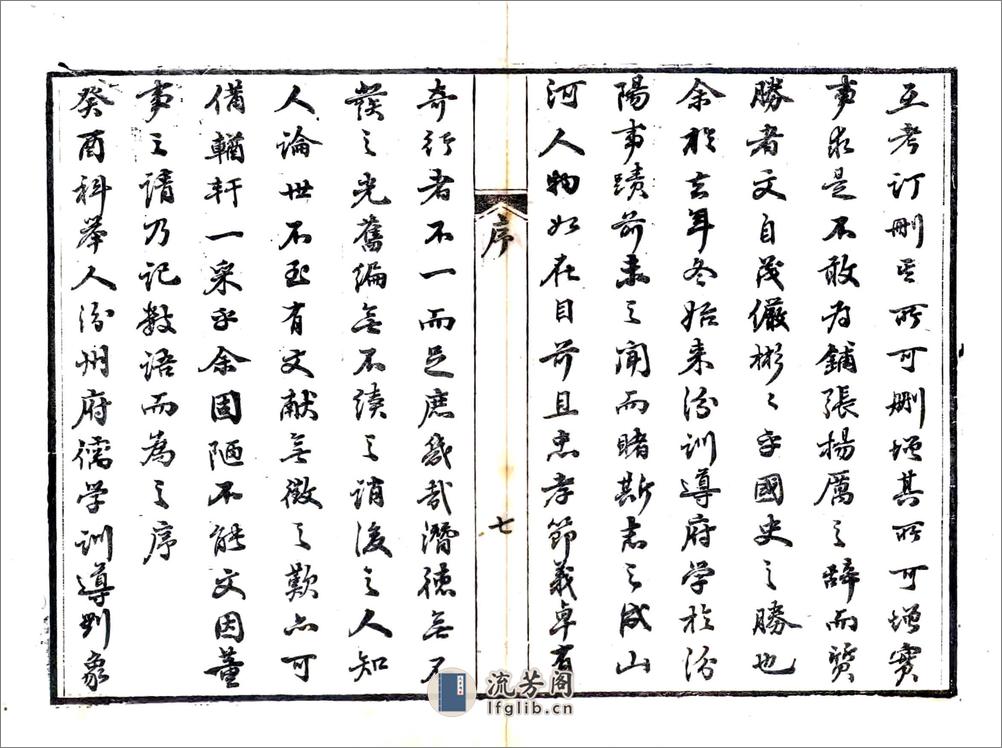 互考订删其所可删增其所可增實
事求是不敢为鋪張揚厲之辞而質
勝者文自茂儼彬〻乎國史之勝也
余於去年冬始来汾训導府学於汾
陽事蹟前未之闻而睹斯志之成山
河人物如在目前且忠孝節義卓有
序
七
奇行者不一而足庶幾哉潛德無不
發之光舊編無不续之誚後之人知
人論世不至有文献無徵之歎亦可
備輶轩一采乎余固陋不能文因董
事之请乃记数语而為之序
癸酉科舉人汾州府儒学训導刘象
流芳阁
lfglib.cn